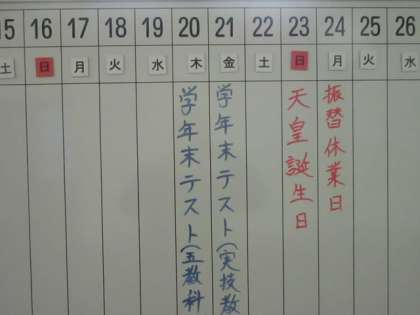 15 16 17 18 19 20 21 22 23 24 25 26
土 日 月 火 水 木 金 土 日 月 火 水
学年末テスト(五教科
学年末テスト(実技教
天皇誕生日
振替休業日